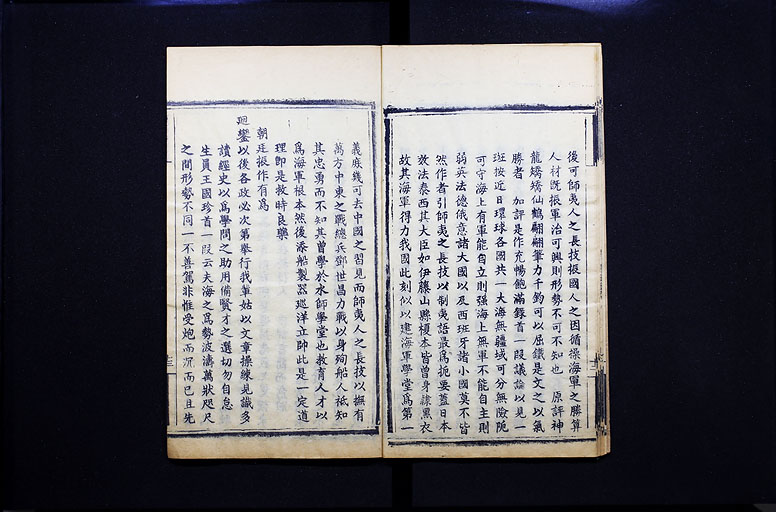 後可師夷人之長技振國人之因循操海軍之勝算
人材既振軍治可興則形勢不可不知也　原評神
龍矯矯仙鶴翩翩筆力千鈞可以屈鐵是文之以氣
勝者　加評是作充暢飽滿錄首一段議論以見一
斑按近日環球各國共一大海無疆域可分無險阨
可守海上有軍能自立則强海上無軍不能自主則
弱英法德俄意諸大國以及西班牙諸小國莫不皆
然作者引師夷之長技以制夷語最爲扼要蓋日本
效法泰西其大臣如伊藤山縣榎本皆曾身隸黑衣
故其海軍得力我國此刻似以建海軍學堂爲第一
義庶幾可去中國之習見而師夷人之長技以撫有
萬方中東之戰總兵鄧世昌力戰以身殉船人祗知
其忠勇而不知其曾學於水師學堂也教育人才以
爲海軍根本然後添船製器廵洋立帥此是一定道
理即是救時良藥
朝廷振作有爲
廻鑾以後各政必次第舉行我輩姑以文章操練見識多
讀經史以爲學問之助用備賢才之選切勿自怠
生員王國珍首一段云夫海之爲勢波濤萬狀咫尺
之間形勢不同一不善駕非惟受炮而沉而已且先